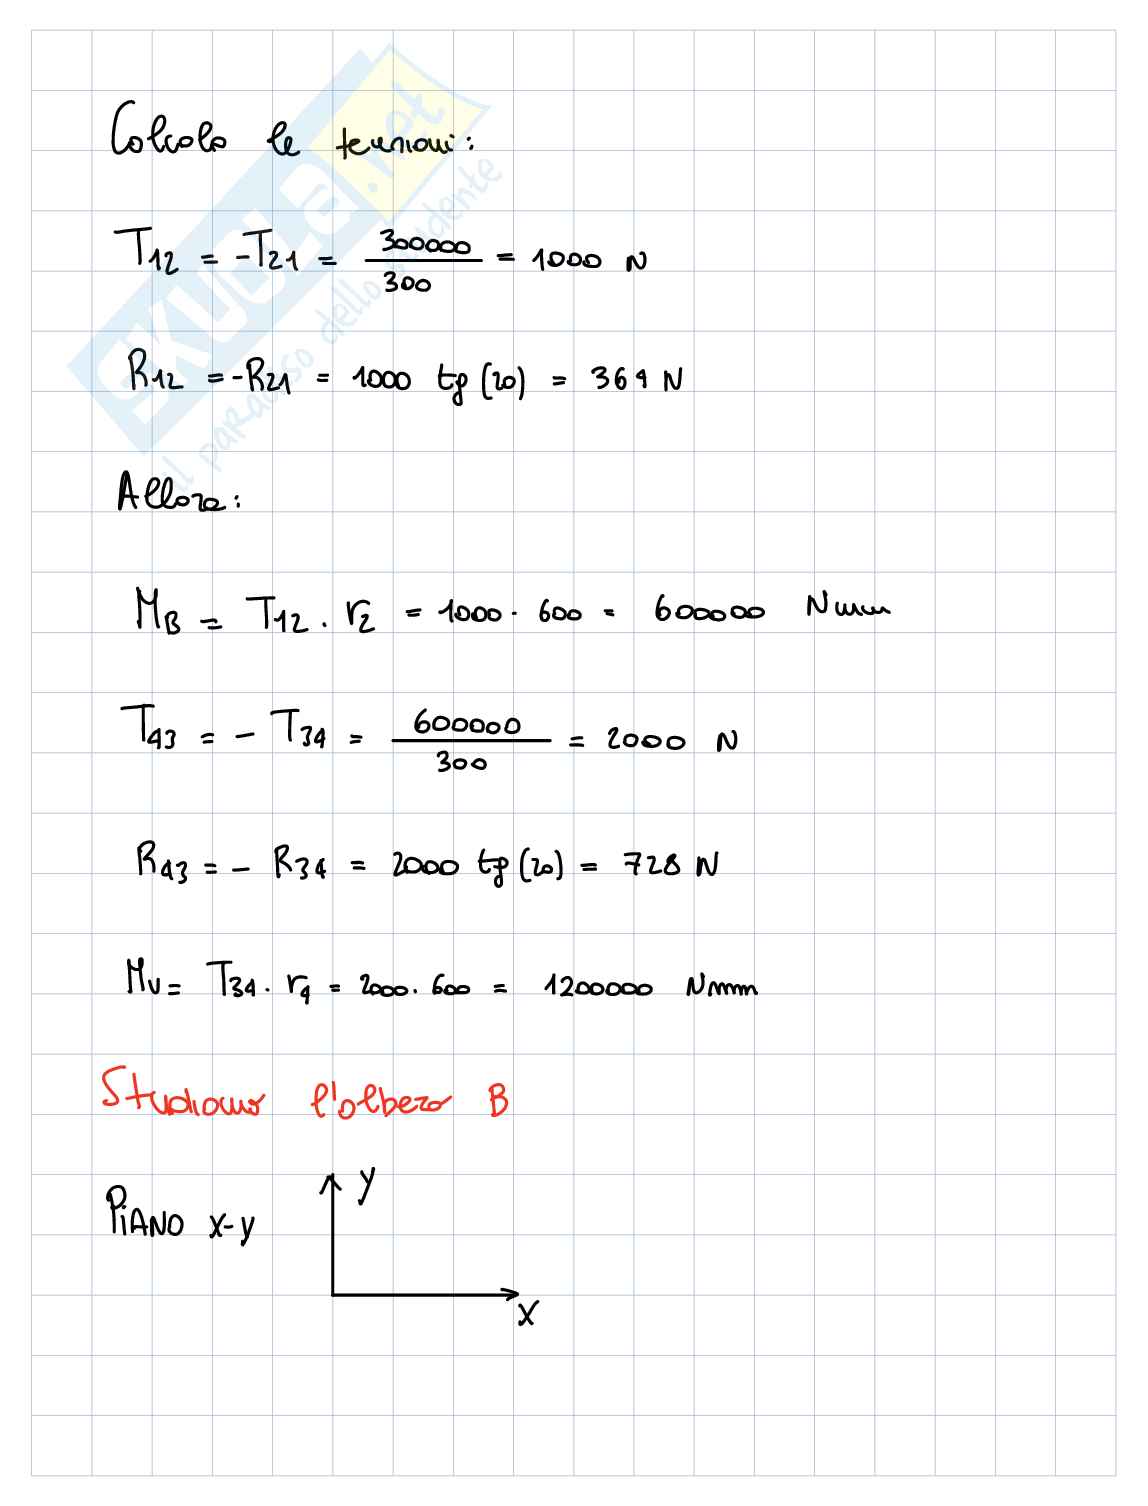 Calcolo le tensioni:
T12 = -T21 = 300000/300 = 1000 N
R12 = -R21 = 1000 tg(20) = 364 N
Allora:
MB = T12 · r2 = 1000 · 600 = 600000 Nmm
T43 = - T34 = 600000/300 = 2000 N
R43 = - R34 = 2000 tg(20) = 728 N
Mv = T34 · r4 = 2000 · 600 = 1200000 Nmm
Studiamo l'albero B
PIANO x-y
y
x
SKUOLA.net
il paradiso dello studente